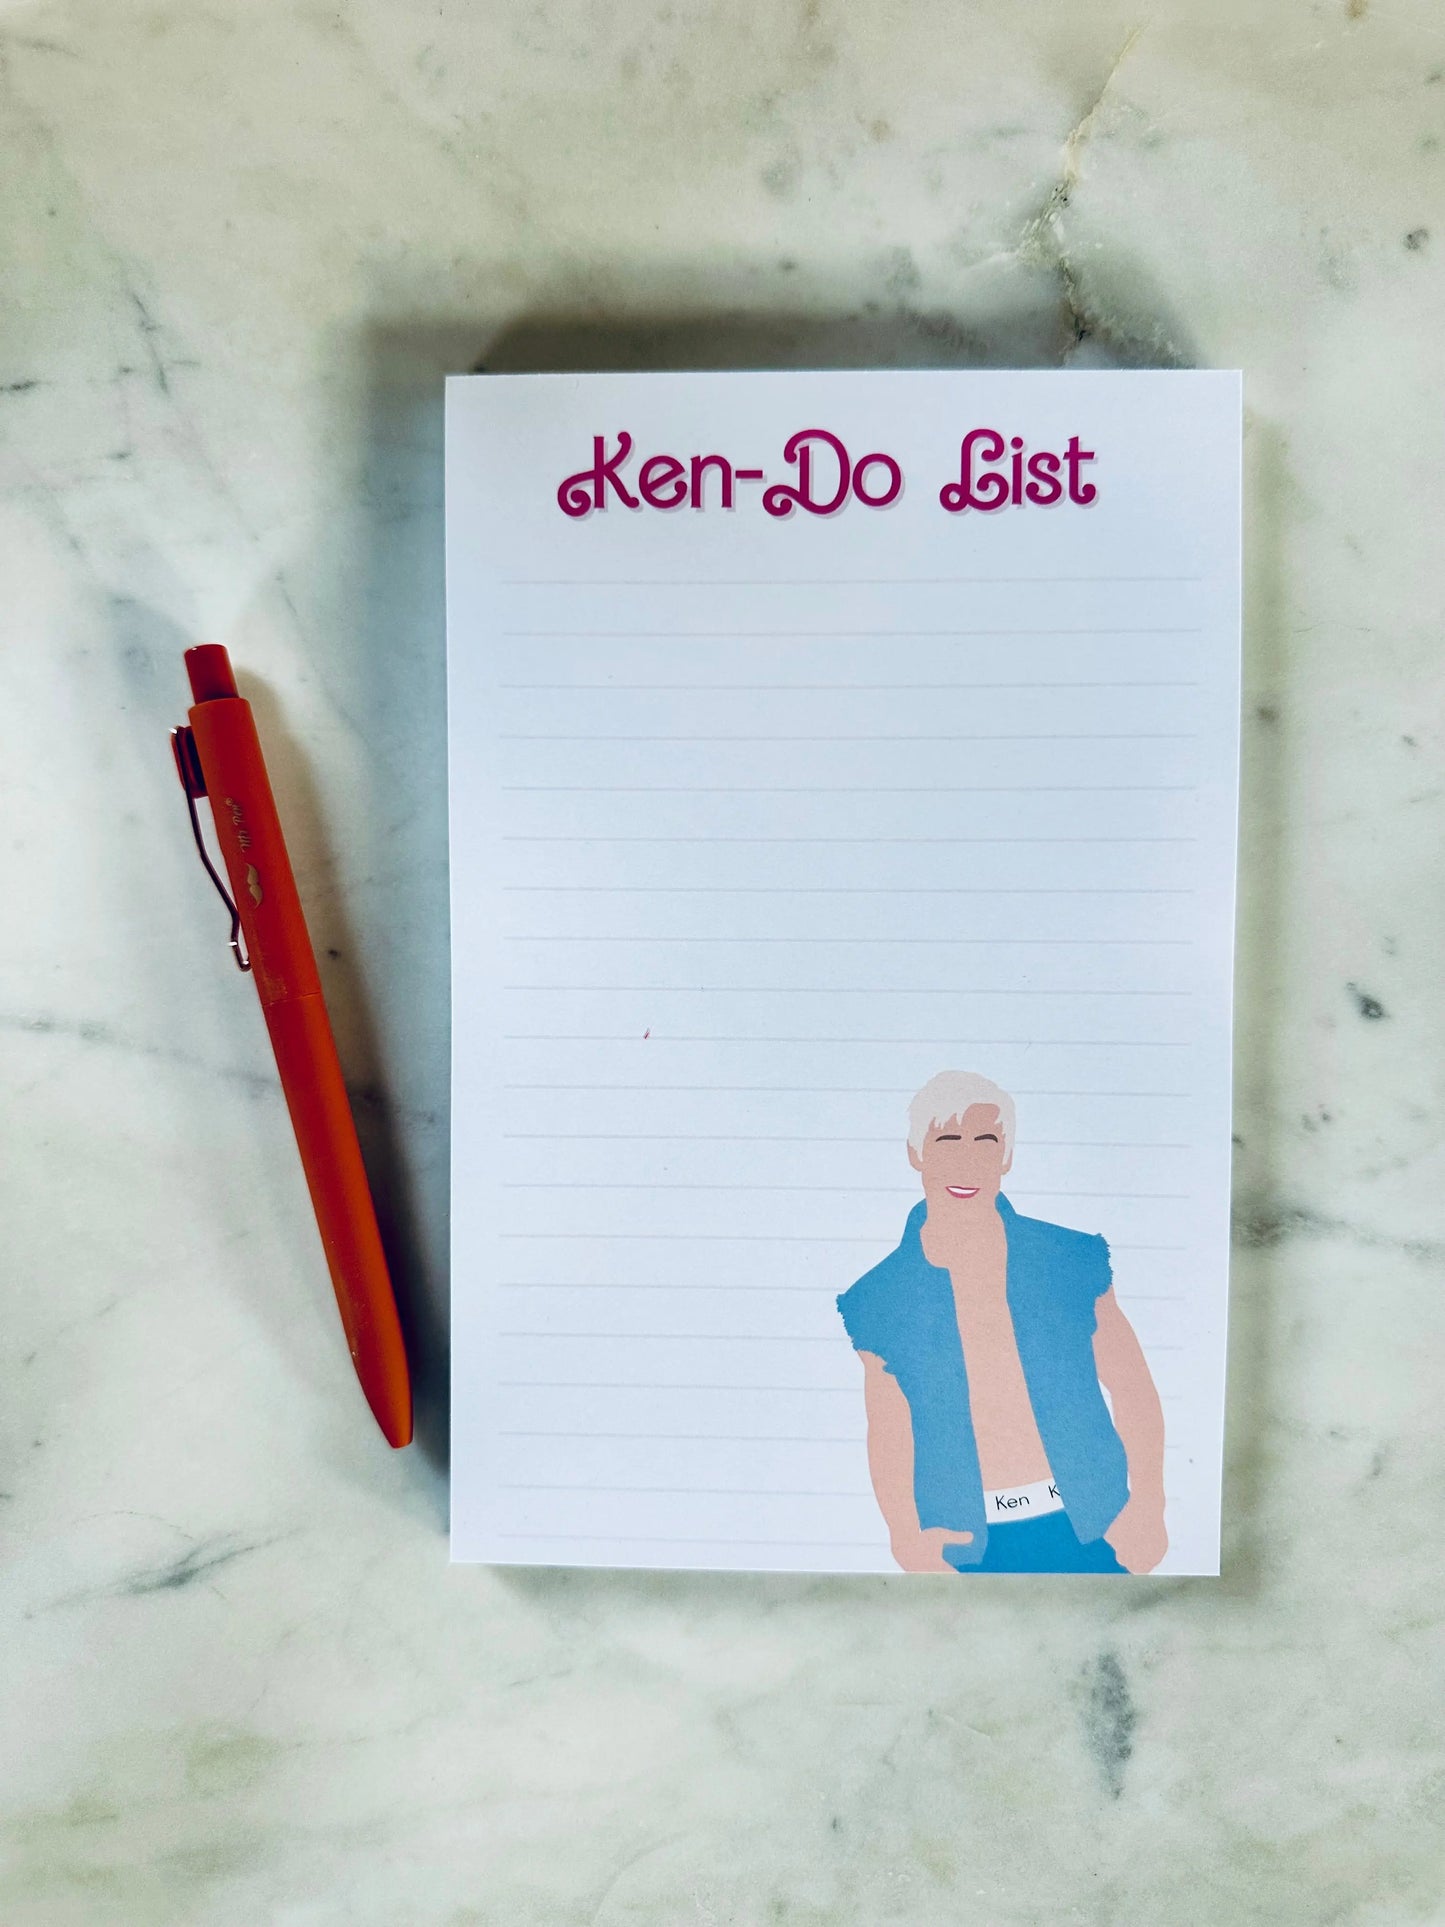 Ken-Do List
Ken K